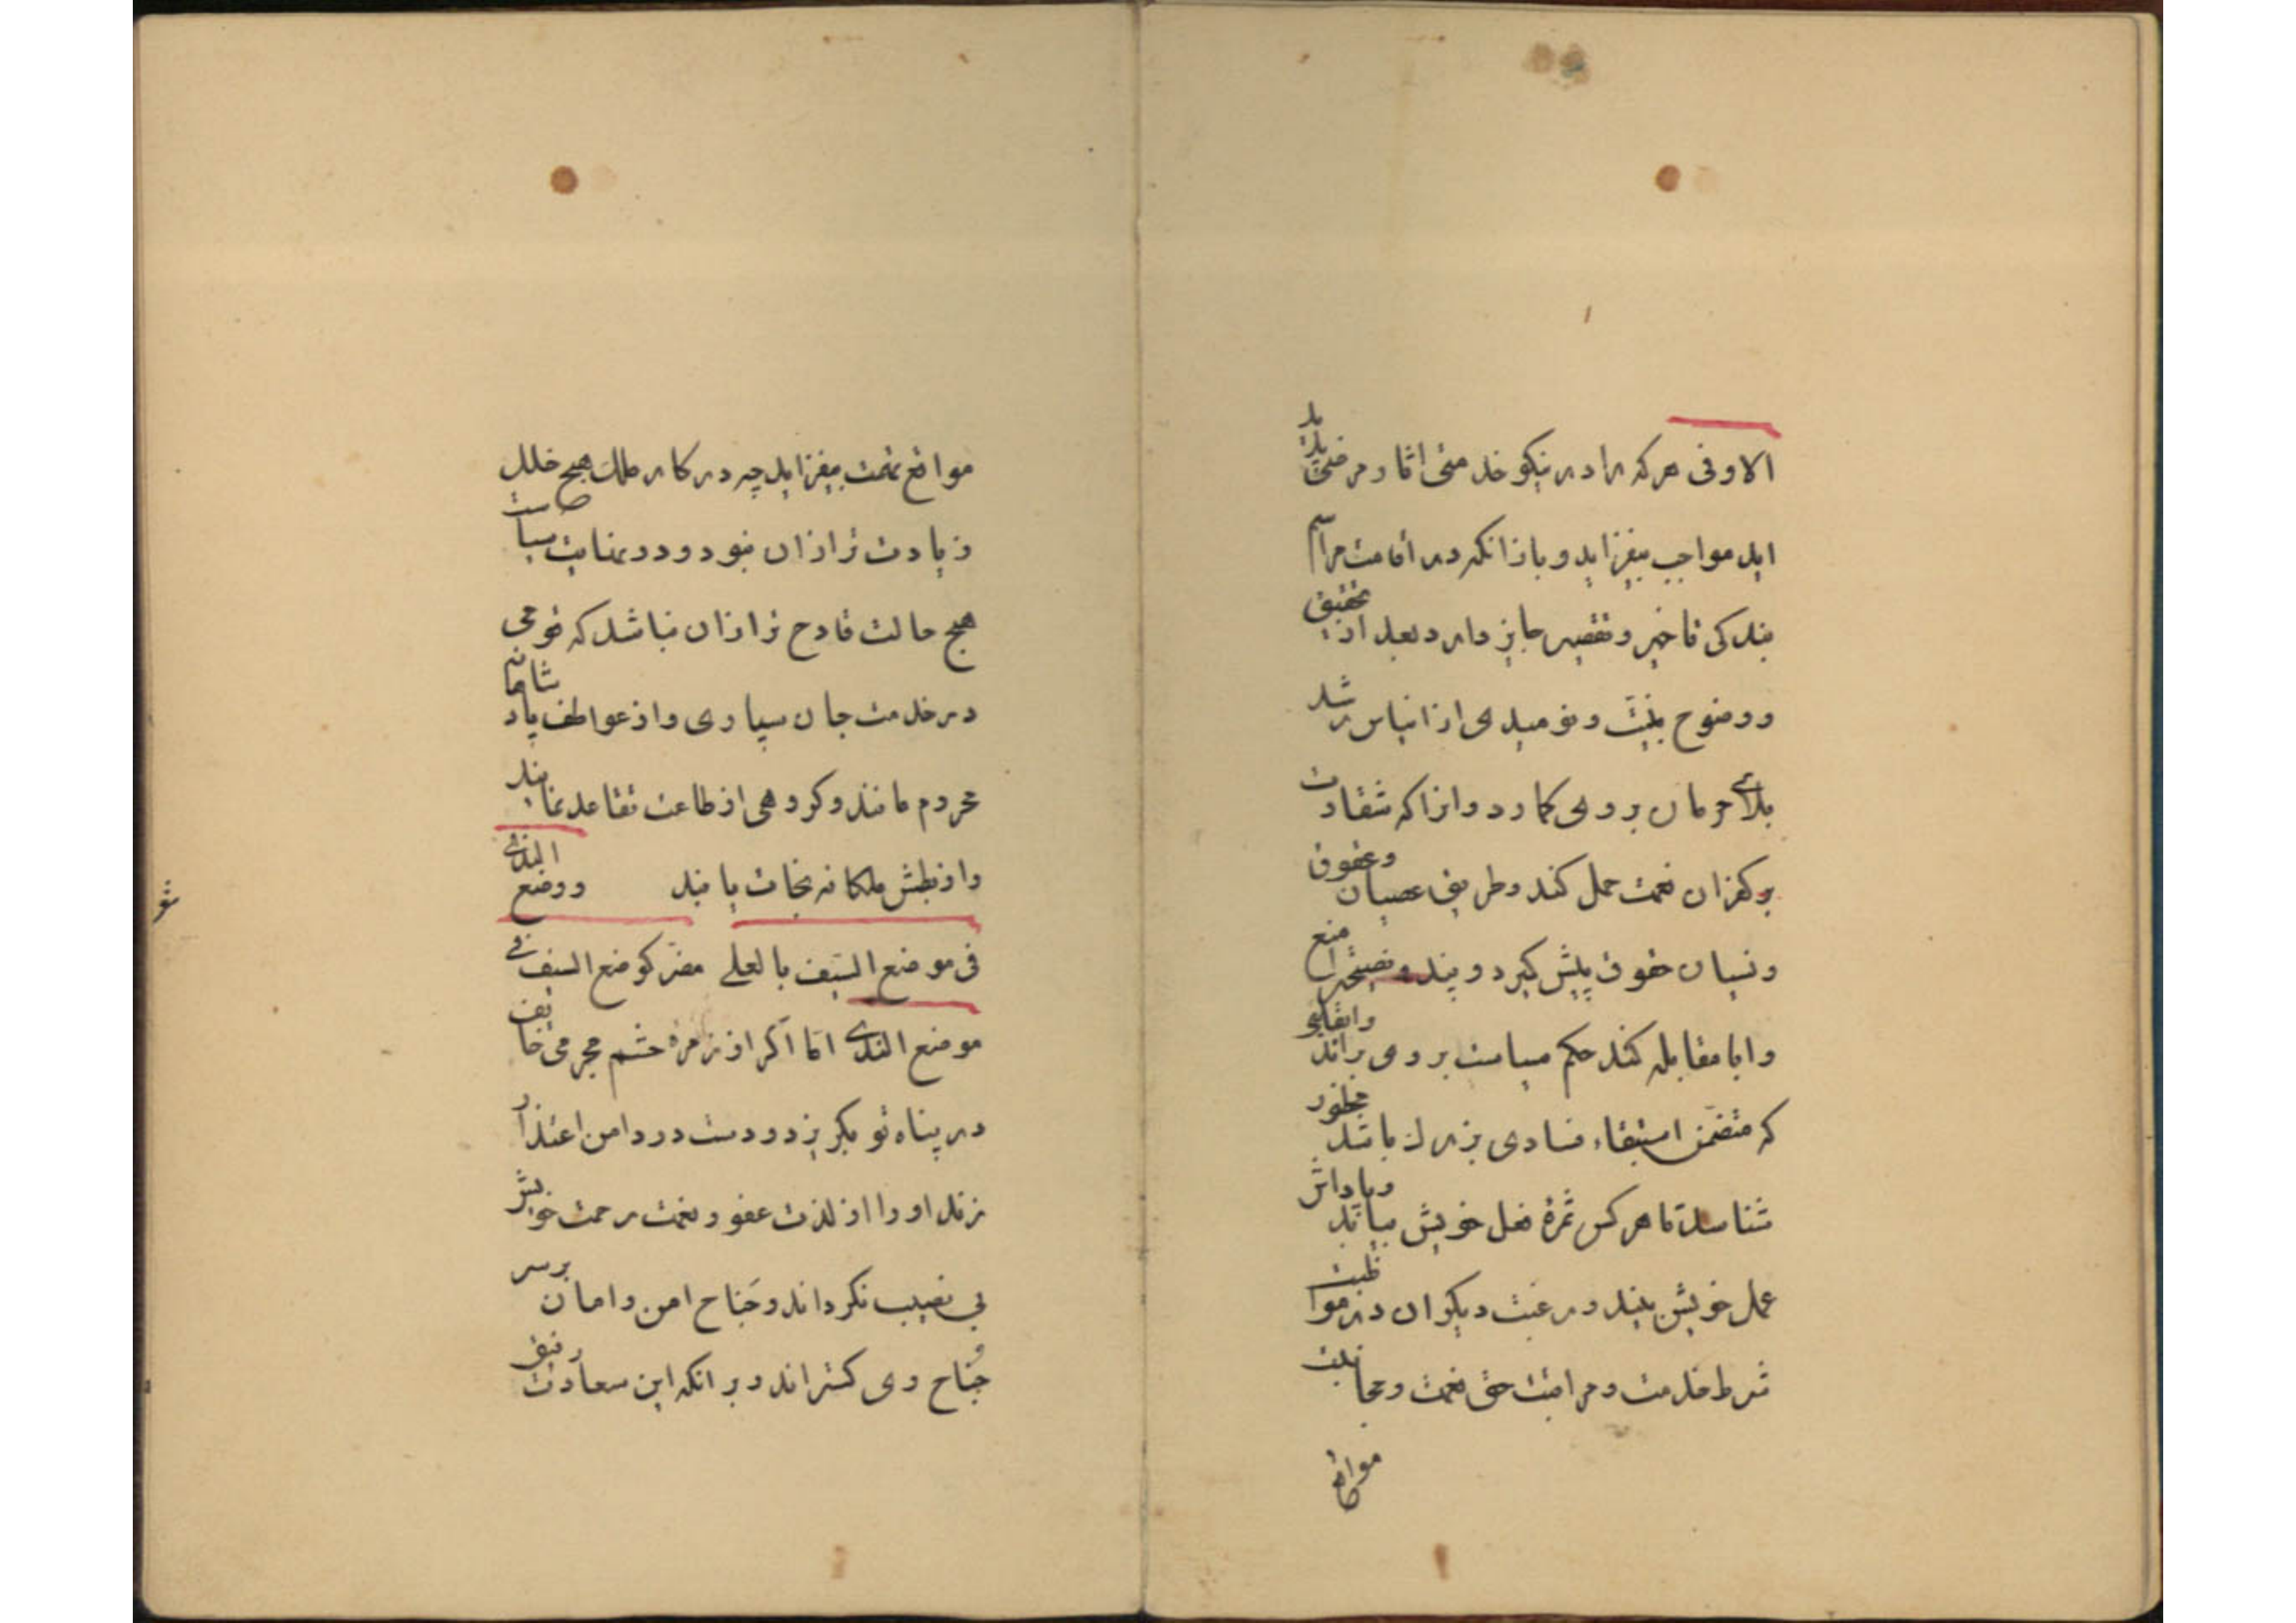 الاوفی هرکه را در نیکو خدمتی اثار مرضی پدید
اید مواجب بیفزاید و باز انکه در اقامت مراسم
بندکی تاخیر و تقصیر جایز دارد بعد از تحقیق
و وضوح بینت و نومیدی از ایناس رشد
بلای حرمان بر وی کمارد و انرا که شقاوت
بر کفران نعمت حمل کند و طریق عصیان و عقوق
و نسیان حقوق پیش کیرد و پند و نصیحترا منع
و ابا مقابله کند حکم سیاست بر وی براند و ابقایی
که متضمن استبقاء فسادی بزرك باشد محظور
شناسد تا هر کس ثمرهٔ فعل خویش بیابد و پاداش
عمل خویش بیند و رغبت دیکران در مواظبت
شرط خدمت و مراقبت حق نعمت و مجانبت
مواقع
مواقع نقمت بیفزاید چه در کار ملك هیچ خلل
زیادت تر ازان نبود و در عنایت سیاست
هیچ حالت قادح تر ازان نباشد که فوجی
در خدمت جان سپاری و از عواطف پادشاهانه
محروم مانند و کروهی از طاعت تقاعد نمایند
و از بطش ملکانه نجات یابند ووضع الندی
فی موضع السیف بالعلی مضر کوضع السیف فی
موضع الندی اما اکر از زمرهٔ حشم مجرمی خایف
در پناه تو بکریزد و دست در دامن اعتذار
زند او را از لذت عفو و نعمت رحمت خویش
بی نصیب نکرداند و جناح امن و امان بر سر
جناح وی کستراند و بر انکه این سعادت رفیق
شو